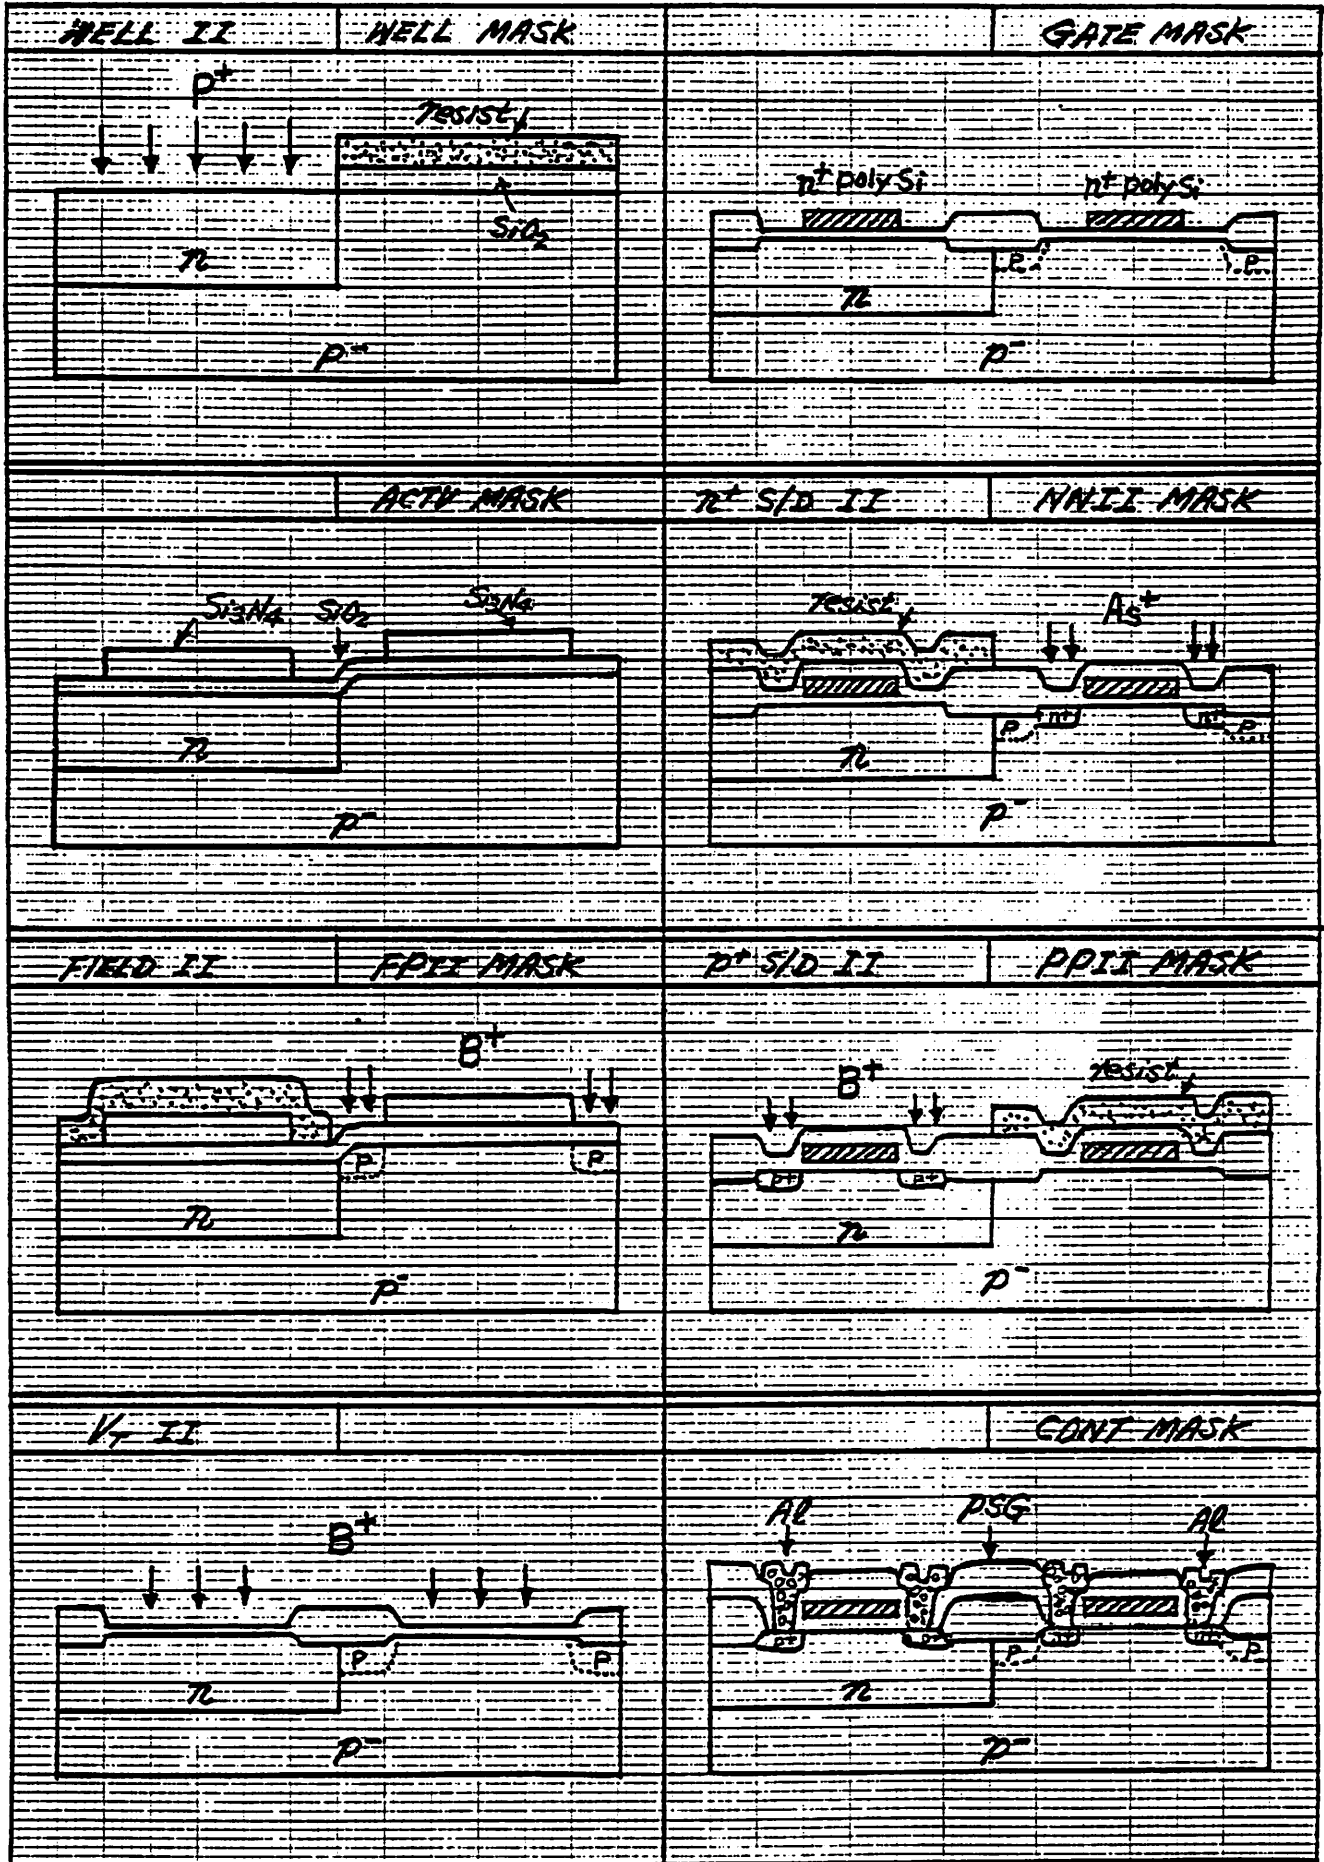 WELL II
WELL MASK
P+
resist
SiO2
n
p-
ACTV MASK
Si3N4
SiO2
Si3N4
n
p-
FIELD II
FPII MASK
B+
P
P
n
p-
VT II
B+
P
P
n
p-
GATE MASK
n+ poly Si
n+ poly Si
P
P
n
p-
n+ S/D II
NNII MASK
resist
As+
P
n+
n+
P
n
p-
p+ S/D II
PPII MASK
B+
resist
p+
p+
n
p-
CONT MASK
Al
PSG
Al
p+
p+
P
n+
n+
P
n
p-